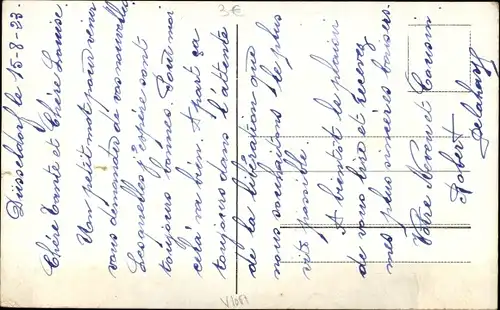 Düsseldorf le 15-8-23.
Chère Tante et Chère Louise
Un petit mot pour venir
vous demander de vos nouvelles
lesquelles j'espère sont
toujours bonnes. Pour moi
cela va bien. A part ça
toujours dans l'attente
de la libération que
nous souhaitons le plus
vite possible.
A bientôt le plaisir
de vous lire et recevez
mes plus sincères baisers.
Votre Neveu et Cousin
Robert
Delahaye
3€